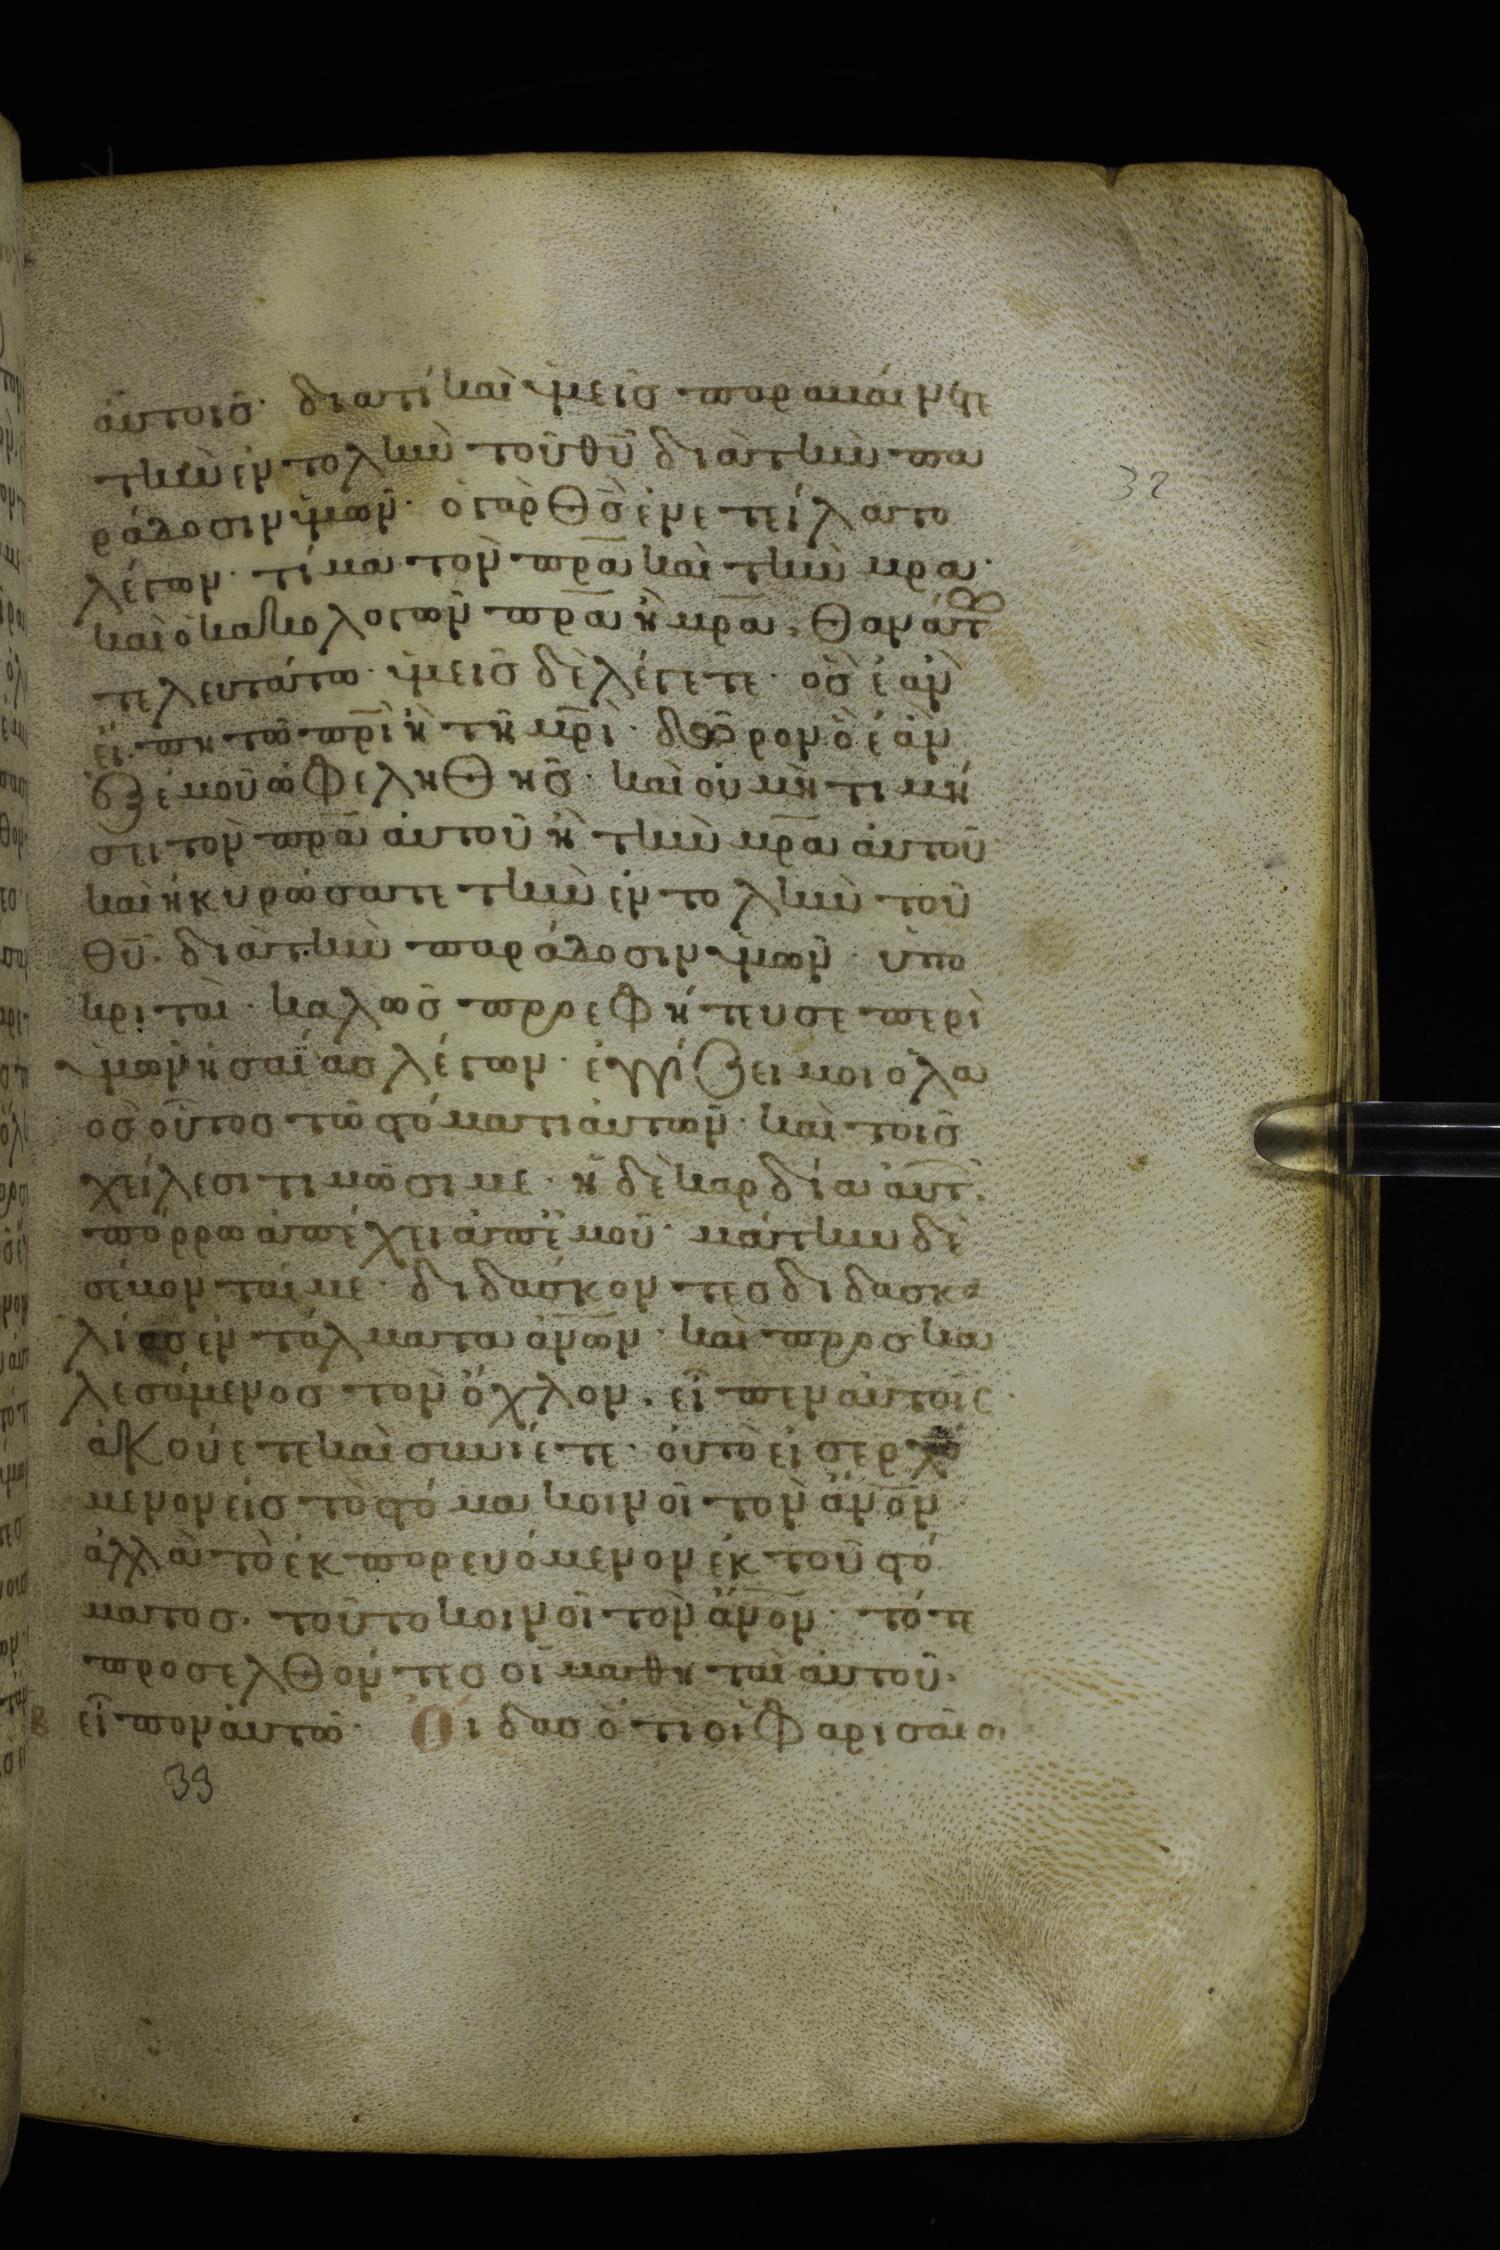 αὐτοῖς· διατί καὶ ὑμεῖς παραβαίνετε
τὴν ἐντολὴν τοῦ θῡ διὰ τὴν πα
ράδοσιν ὑμῶν· ὁ γὰρ θς̄ ἐνετείλατο
λέγων· τίμα τὸν πρ̄α καὶ τὴν μρ̄α·
καὶ ὁ κακολογῶν πρ̄α ἢ μρ̄α, θανάτω
τελευτάτω· ὑμεῖς δὲ λέγετε· ὃς ἐὰν
εἴπη τῶ πρ̄ὶ ἢ τῆ μρ̄ὶ· δῶρον ὃ ἐὰν
ἐξ ἐμοῦ ὠφεληθῆς· καὶ οὐ μὴ τιμή
σει τὸν πρ̄α αὐτοῦ ἢ τὴν μρ̄α αὐτοῦ
καὶ ἠκυρώσατε τὴν ἐντολὴν τοῦ
θῡ· διὰ τὴν παράδοσιν ὑμῶν· ὑπο
κριταὶ· καλῶς προεφήτευσε περὶ
ὑμῶν ἠσαΐας λέγων· ἐγγίζει μοι ὁ λα
ὸς οὗτος τῶ στόματι αὐτῶν· καὶ τοῖς
χείλεσι τιμῶσι με· ἡ δὲ καρδία αὐτ̄·
πόρρω ἀπέχει ἀπ' ἐμοῦ· μάτην δὲ
σέβονταί με· διδάσκοντες διδασκα
λίας ἐντάλματα ἀν̄ων· καὶ προσκα
λεσάμενος τὸν ὄχλον, εἶπεν αὐτοῖς
ἀκούετε καὶ συνίετε· οὐ τὸ εἰσερχό
μενον εἰς τὸ στόμα κοινοῖ τὸν ἄν̄ον
ἀλλὰ τὸ ἐκπορευόμενον ἐκ τοῦ στό
ματος· τοῦτο κοινοῖ τὸν ἄν̄ον· τότε
προσελθόντες οἱ μαθηταὶ αὐτοῦ·
εἶπον αὐτῶ· Οἶδας ὅτι οἱ φαρισαῖοι
32
33